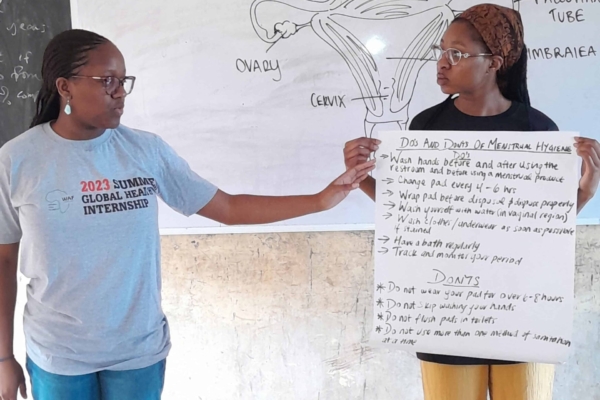 OVARY
CERVIX
TUBE
IMBRAIEA
2023 SUMME
GLOBAL HEALTH
INTERNSHIP
DOS AND DONTS OF MENSTRUAL HYGIENE
DO'S
→ Wash hands before and after using the
restroom and before using a menstrual product
→ Change pad every 4-6 hrs
→ Wrap pad before disposal & dispose properly
→ Wash yourself with water (in vaginal region)
→ Wash clothes / underwear as soon as possible
if stained
→ Have a bath regularly
→ Track and monitor your period
DONTS
* Do not wear your pad for over 6-8 hours
* Do not skip washing your hands
* Do not flush pads in toilets
* Do not use more than one method of sanitation
at a time